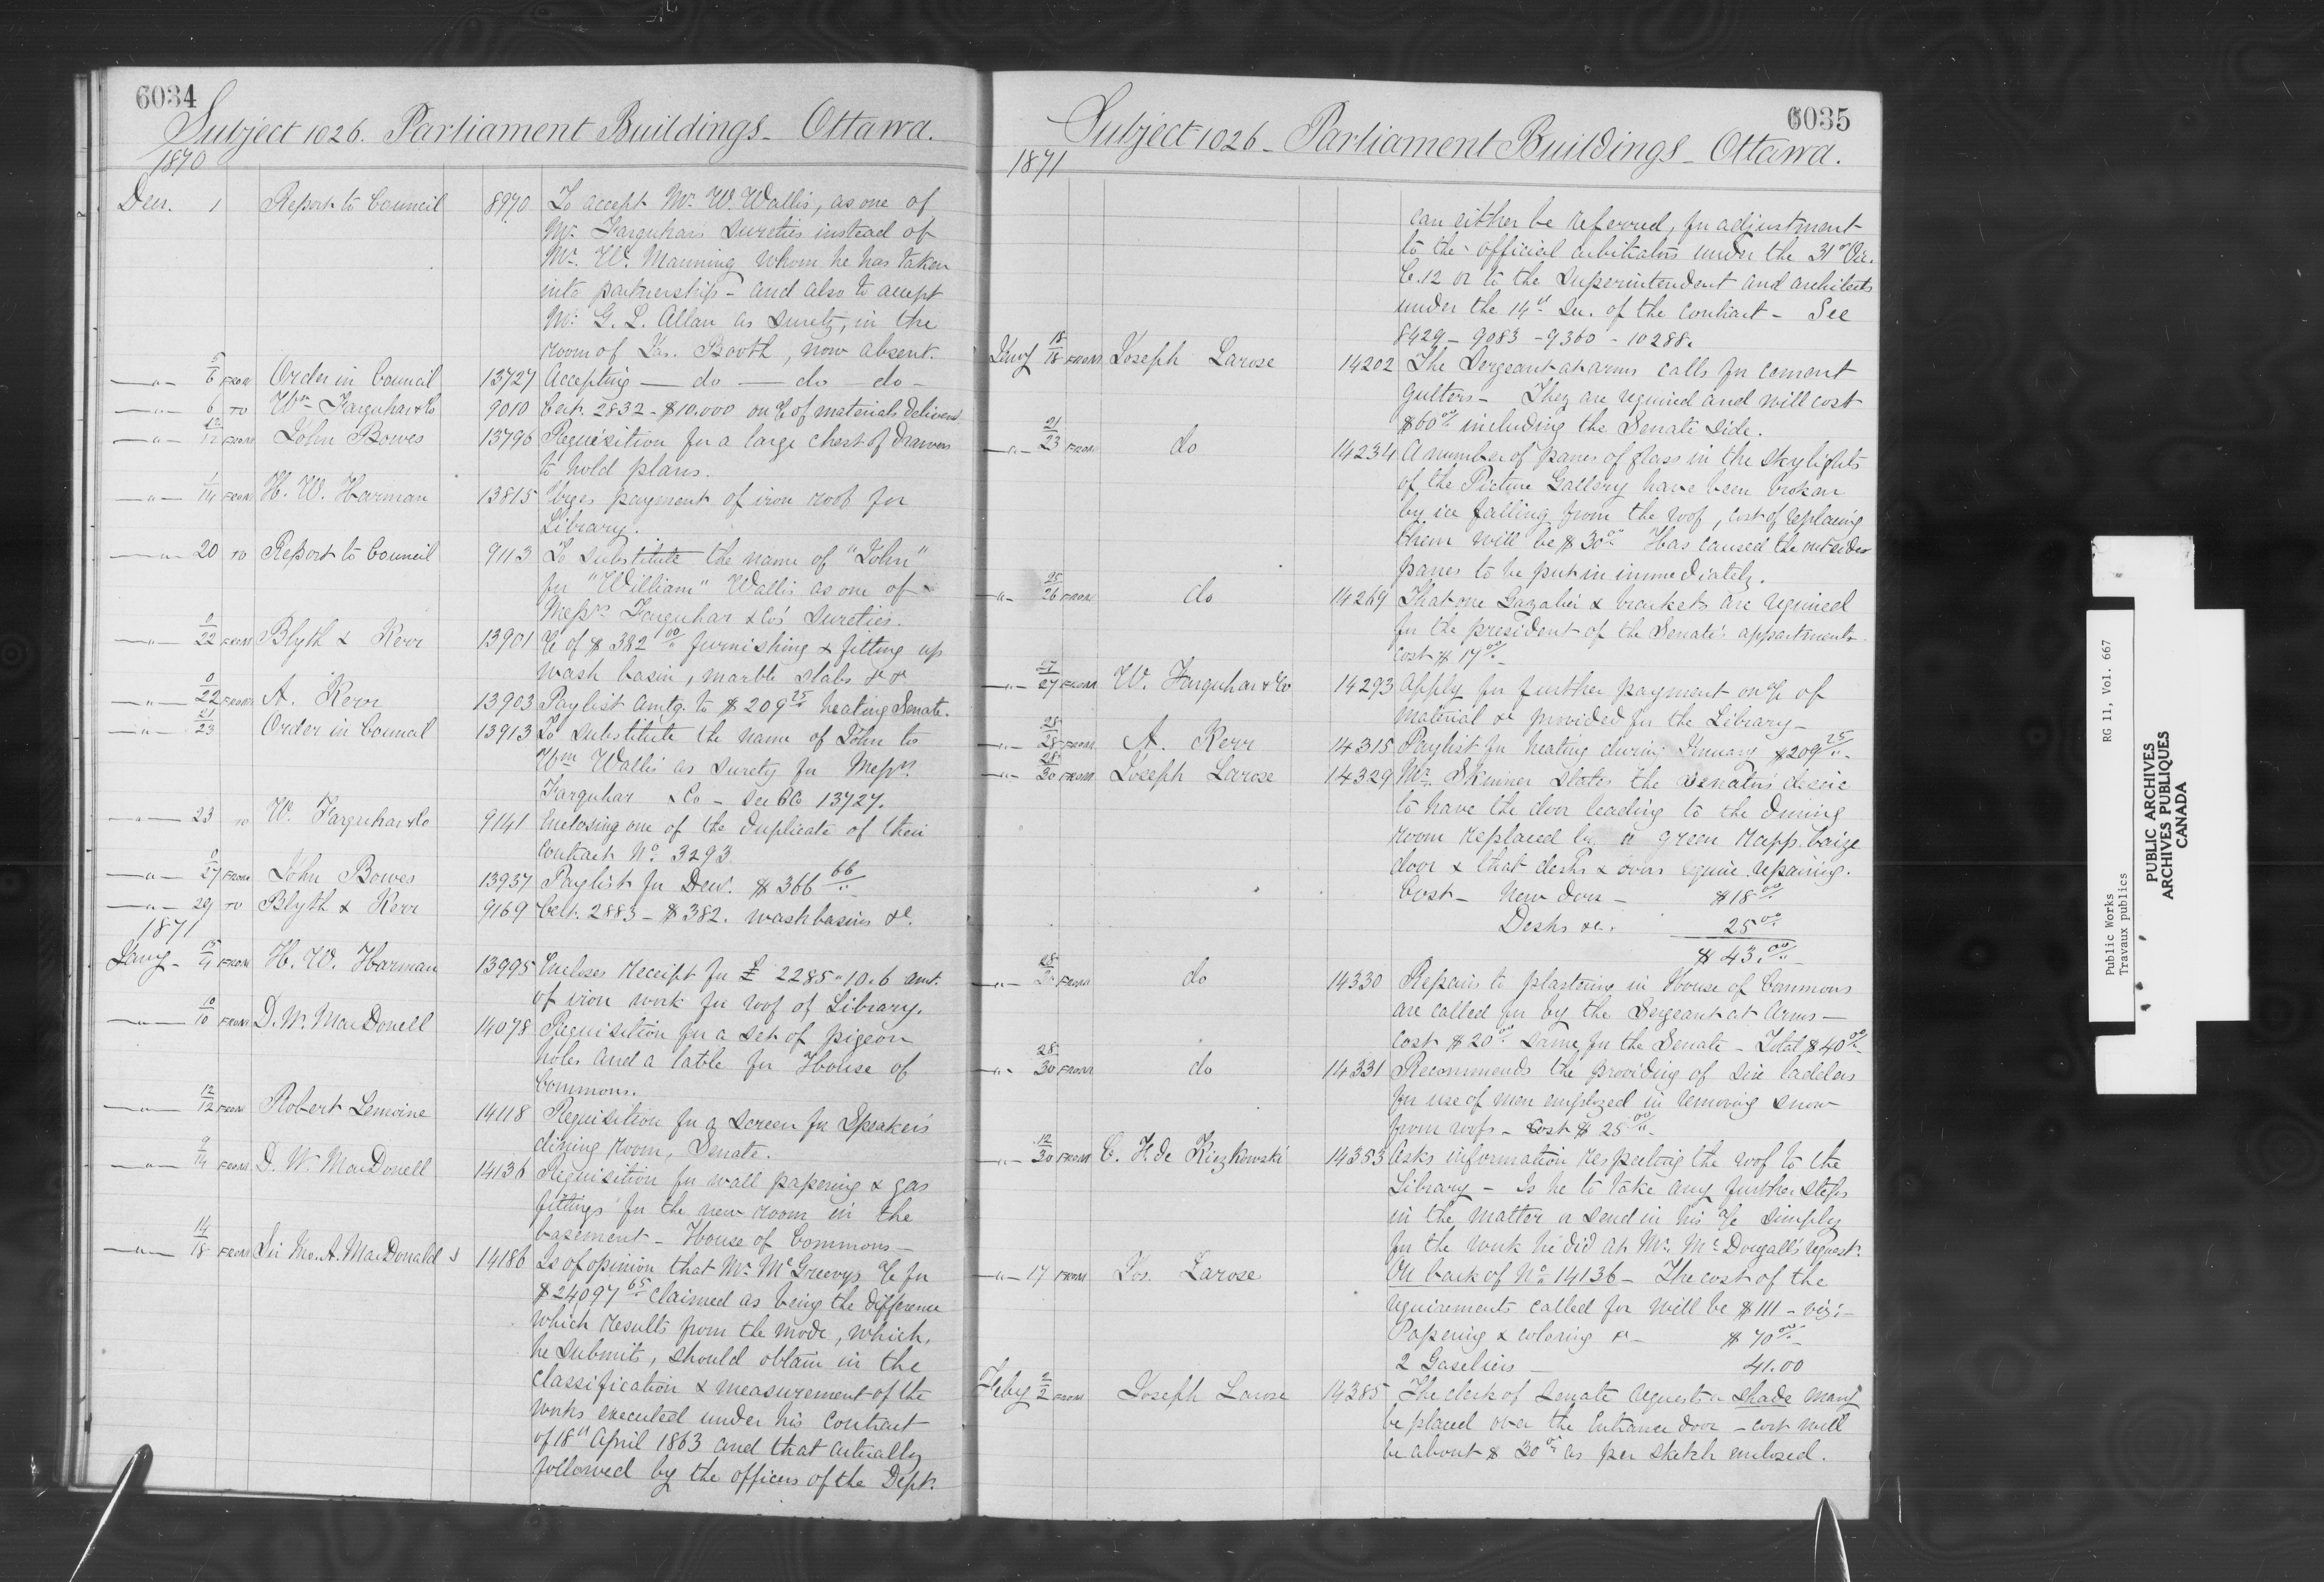 6034
Subject 1026. Parliament Buildings - Ottawa.
1870
Decr. 1 Report to Council 8970 To accept Mr. W. Wallis, as one of
Mr. Farquhar's Sureties instead of
Mr. W. Manning whom he has taken
into partnership - and also to accept
Mr. G. L. Allan as Surety, in the
room of Jas. Booth, now absent.
—"— 5/6 FROM Order in Council 13727 Accepting — do — do — do —
—"— 6 TO Wm Farquhar & Co 9010 Cert. 2832 - $10.000 on % of materials delivered
—"— 12/12 FROM John Bowes 13796 Requisition for a large chest of drawers
to hold plans.
—"— 1/14 FROM H. W. Harman 13815 Urges payment of iron roof for
Library.
—"— 20 TO Report to Council 9113 To substitute the name of "John"
for "William" Wallis as one of
Messrs. Farquhar & Co's Sureties.
—"— 0/22 FROM Blyth & Kerr 13901 % of $382 00/.. furnishing & fitting up
wash basin, marble slabs &c &c
—"— 0/22 FROM A. Kerr 13903 Paylist amtg. to $209 25 heating Senate.
—"— 21/23 Order in Council 13913 To substitute the name of John to
Wm Wallis as surety for Messrs.
Farquhar & Co - See OC 13727.
—"— 23 TO W. Farquhar & Co 9141 Enclosing one of the duplicate of their
Contract No. 3293.
—"— 0/27 FROM John Bowes 13937 Paylist for Decr. $366 66/..
—"— 29 TO Blyth & Kerr 9169 Cert. 2883 - $382. washbasins &c.
1871
Jany - 15/4 FROM H. W. Harman 13995 Encloses receipt for £ 2285 " 10.6 amt.
of iron work for roof of Library.
—"— 10/10 FROM D. W. MacDonell 14078 Requisition for a set of pigeon
holes and a table for House of
Commons.
—"— 12/12 FROM Robert Lemoine 14118 Requisition for a screen for Speaker's
dining room, Senate.
—"— 9/14 FROM D. W. MacDonell 14136 Requisition for wall papering & gas
fittings for the new room in the
basement - House of Commons -
—"— 14/18 FROM Sir Jno. A. MacDonald 14186 Is of opinion that Mr. McGreevy's % for
$24097 65 claimed as being the difference
which results from the mode, which,
he submits, should obtain in the
classification & measurement of the
works executed under his Contract
of 18th April 1863 and that actually
followed by the officers of the Dept.
6035
Subject 1026 - Parliament Buildings - Ottawa.
1871
can either be referred, for adjustment
to the official arbitrators under the 31st Vic.
C. 12 or to the Superintendent and architects
under the 14th Sec. of the Contract - See
8429 - 9083 - 9360 - 10288.
Jany 18/18 FROM Joseph Larose 14202 The Sergeant at arms calls for cement
gutters - They are required and will cost
$60 00 including the Senate side.
—"— 21/23 FROM do 14234 A number of panes of glass in the skylights
of the Picture Gallery have been broken
by ice falling from the roof, cost of replacing
them will be $30 00 Has caused the outside
panes to be put in immediately.
—"— 25/26 FROM do 14269 That one Gazalier & brackets are required
for the president of the Senate's appartments
cost $17 00/..
—"— 27/27 FROM W. Farquhar & Co 14293 Apply for further payment on % of
material &c provided for the Library -
—"— 28/28 FROM A. Kerr 14315 Paylist for heating during January $209 25/..
—"— 28/30 FROM Joseph Larose 14329 Mr. Skinner states the Senators desire
to have the door leading to the dining
room replaced by a green rapp baize
door & that desks & doors require repairing.
Cost - New door - $18 00
Desks &c. 25 00
$43. 00/..
—"— 28/30 FROM do 14330 Repairs to plastering in House of Commons
are called for by the Sergeant at Arms -
Cost $20 00 same for the Senate - Total $40 00
—"— 28/30 FROM do 14331 Recommends the providing of six ladders
for use of men employed in removing snow
from roofs - Cost $25 00/..
—"— 12/30 FROM C. H. de Kiezkowski 14353 Asks information respecting the roof to the
Library - Is he to take any further steps
in the matter or send in his % simply
for the work he did at Mr. McDougall's request.
—"— 17 FROM Jos. Larose On back of No. 14136 - The cost of the
requirements called for will be $111 - viz: -
Papering & coloring &c - $70 00
2 Gaseliers - 41.00
Feby 2/2 FROM Joseph Larose 14385 The clerk of Senate requests a shade may
be placed over the Entrance door - cost will
be about $30 00 as per sketch enclosed.
Public Works RG 11, Vol. 667
Travaux publics
PUBLIC ARCHIVES
ARCHIVES PUBLIQUES
CANADA